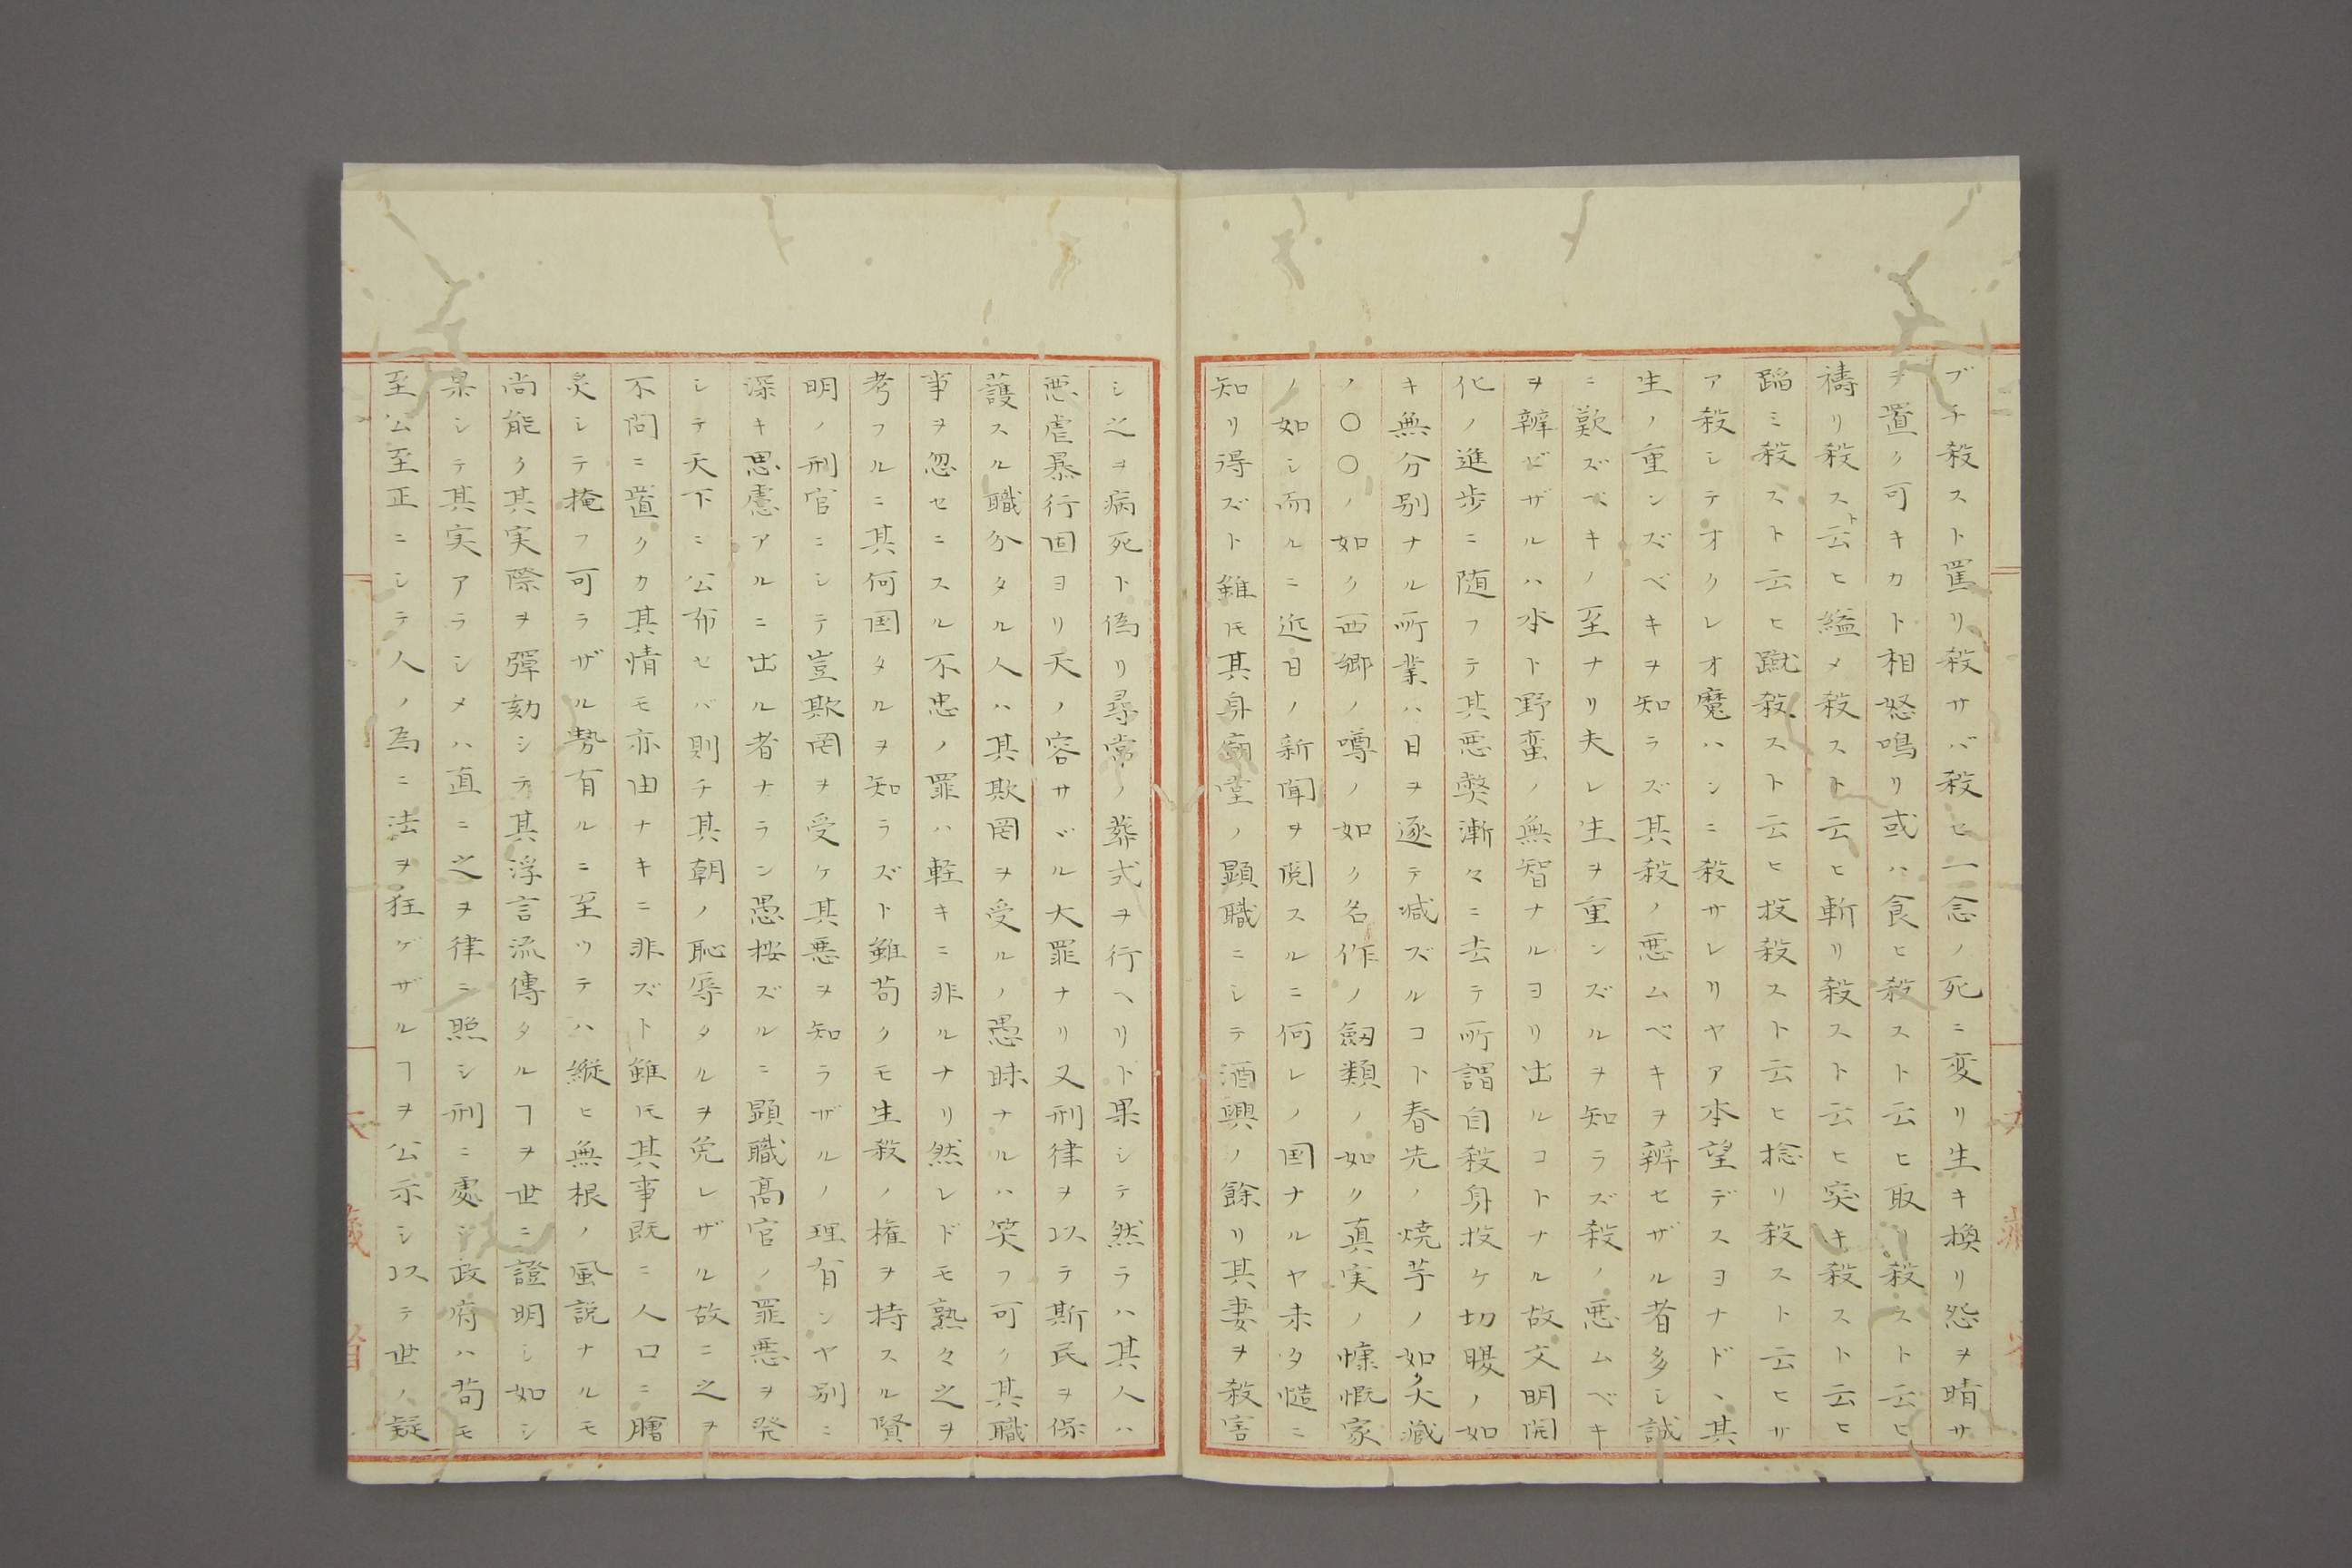 ブチ殺スト罵リ殺サバ殺セ一念ノ死ニ変リ生キ換リ怨ヲ晴サ
デ置ク可キカト相怒鳴リ或ハ食ヒ殺スト云ヒ取リ殺スト云ヒ
禱リ殺スト云ヒ縊メ殺スト云ヒ斬リ殺スト云ヒ突キ殺スト云ヒ
蹈ミ殺スト云ヒ蹴殺スト云ヒ投殺スト云ヒ捻リ殺スト云ヒサ
ア殺シテオクレオ魔ハンニ殺サレリヤア本望デスヨナド、其
生ノ重ンズベキヲ知ラズ其殺ノ悪ムベキヲ辨セザル者多シ誠
ニ歎ズベキノ至ナリ夫レ生ヲ重ンズルヲ知ラズ殺ノ悪ムベキ
ヲ辨ビザルハ本ト野蛮ノ無智ナルヨリ出ルコトナル故文明開
化ノ進歩ニ随フテ其悪弊漸々ニ去テ所謂自殺身投ケ切腹ノ如
キ無分別ナル所業ハ日ヲ逐テ減ズルコト春先ノ焼芋ノ如ク大蔵
ノ〇〇ノ如ク西郷ノ噂ノ如ク名作ノ劔類ノ如ク真実ノ慷慨家
ノ如シ而ルニ近日ノ新聞ヲ閲スルニ何レノ国ナルヤ未タ慥ニ
知リ得ズト雖圧其身廟堂ノ顕職ニシテ酒興ノ餘リ其妻ヲ殺害
シ之ヲ病死ト偽リ尋常ノ葬式ヲ行ヘリト果シテ然ラハ其人ハ
悪虐暴行固ヨリ天ノ容サヾル大罪ナリ又刑律ヲ以テ斯民ヲ保
護スル職分タル人ハ其欺罔ヲ受ルノ愚昧ナルハ笑フ可ク其職
事ヲ忽セニスル不忠ノ罪ハ軽キニ非ルナリ然レドモ熟々之ヲ
考フルニ其何国タルヲ知ラズト雖苟クモ生殺ノ権ヲ持スル賢
明ノ刑官ニシテ豈欺罔ヲ受ケ其悪ヲ知ラザルノ理有ンヤ別ニ
深キ思慮アルニ出ル者ナラン愚按ズルニ顕職高官ノ罪悪ヲ発
シテ天下ニ公布セバ則チ其朝ノ恥辱タルヲ免レザル故ニ之ヲ
不問ニ置クカ其情モ亦由ナキニ非ズト雖圧其事既ニ人口ニ膾
炙シテ掩フ可ラザル勢有ルニ至ツテハ縦ヒ無根ノ風説ナルモ
尚能ク其実際ヲ彈劾シテ其浮言流傳タルヿヲ世ニ證明シ如シ
果シテ其実アラシメハ直ニ之ヲ律ニ照シ刑ニ處シ政府ハ苟モ
至公至正ニシテ人ノ為ニ法ヲ狂ゲザルヿヲ公示シ以テ世ノ疑